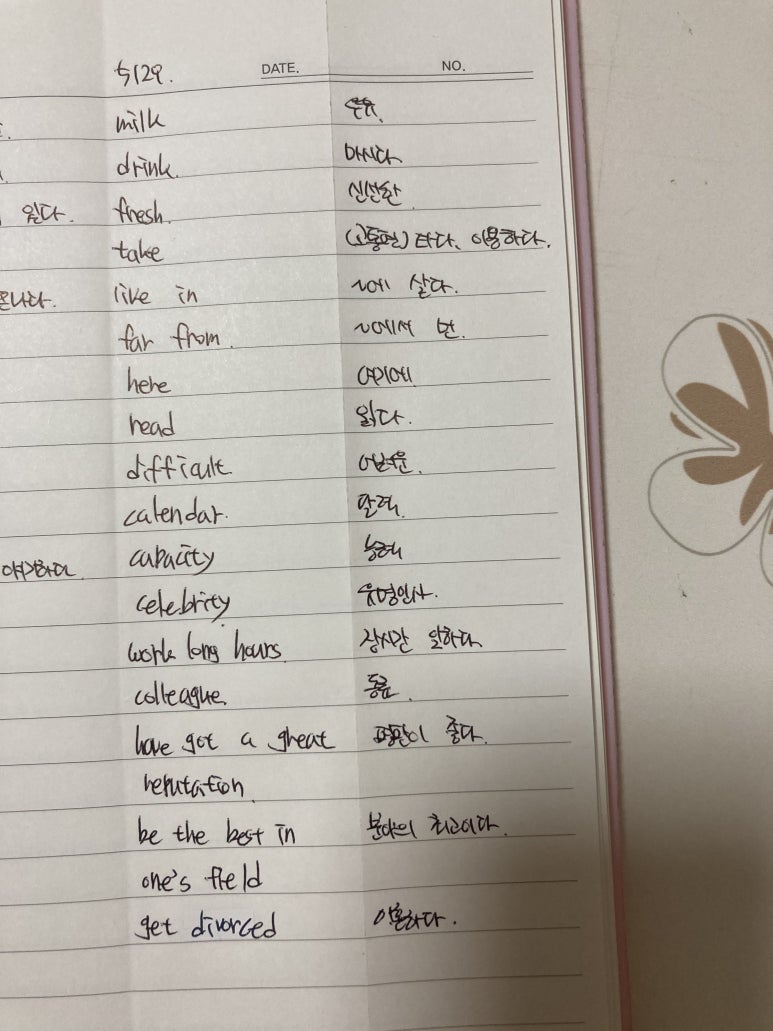 5/29. DATE. NO.
milk 우유.
drink. 마시다
읽다. fresh. 신선한
take (교통편) 타다, 이용하다.
만나다. live in ~에 살다.
far from. ~에서 먼.
here 여기에
read 읽다.
difficult 어려운.
calendar. 달력.
야기하다 capacity 능력
celebrity 유명인사.
work long hours. 장시간 일하다
colleague. 동료.
have got a great 평판이 좋다.
reputation.
be the best in 분야의 최고이다.
one's field
get divorced 이혼하다.